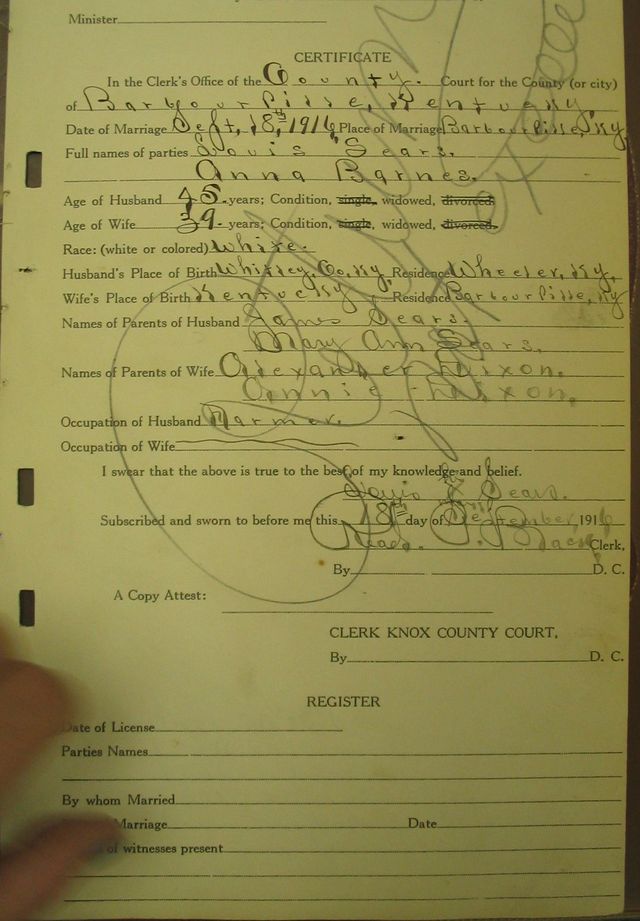 Minister
CERTIFICATE
In the Clerk's Office of the County. Court for the County (or city)
of Barbourville, Kentucky
Date of Marriage Sept, 18th, 1916 Place of Marriage Barbourville, Ky
Full names of parties Louis Sears.
Anna Barnes.
Age of Husband 45. years; Condition, single, widowed, divorced.
Age of Wife 39. years; Condition, single, widowed, divorced.
Race: (white or colored) White.
Husband's Place of Birth Whitley, Co, Ky. Residence Wheeler, Ky,
Wife's Place of Birth Kentucky, Residence Barbourville, Ky
Names of Parents of Husband James Sears.
Mary Ann Sears.
Names of Parents of Wife Alexander Dixon.
Dixon.
Occupation of Husband Farmer.
Occupation of Wife
I swear that the above is true to the best of my knowledge and belief.
Louis Sears.
Subscribed and sworn to before me this 18th day of September 1916
Read P. Black Clerk.
By D. C.
A Copy Attest:
CLERK KNOX COUNTY COURT,
By D. C.
REGISTER
Date of License
Parties Names
By whom Married
Marriage Date
of witnesses present